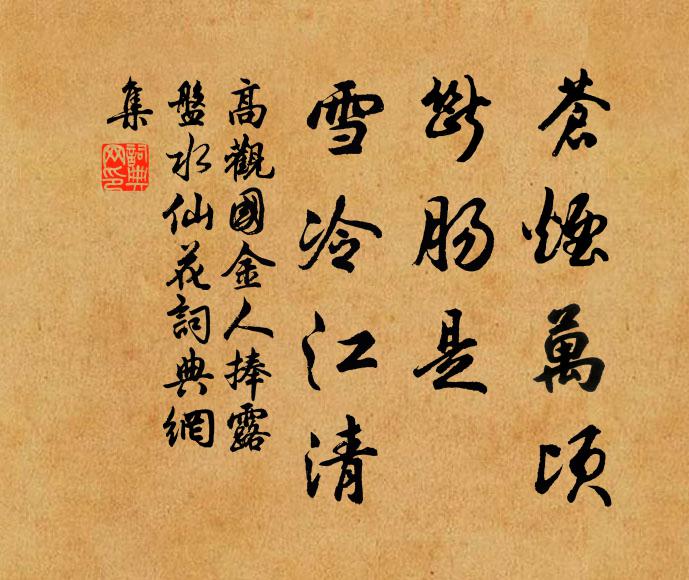 蒼煙萬頃
斷腸是
雪冷江清
高觀國金人捧露
盤水仙花詞典網
集
詞典網印